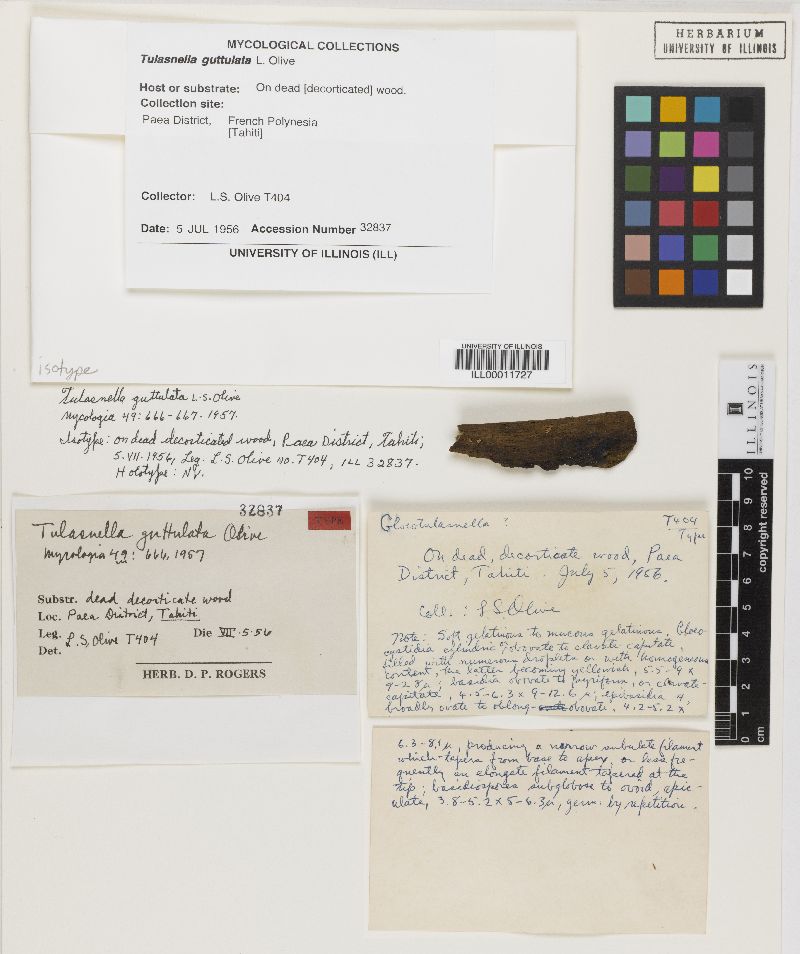 HERBARIUM
UNIVERSITY OF ILLINOIS
MYCOLOGICAL COLLECTIONS
Tulasnella guttulata L. Olive
Host or substrate: On dead [decorticated] wood.
Collection site:
Paea District, French Polynesia
[Tahiti]
Collector: L.S. Olive T404
Date: 5 JUL 1956 Accession Number 32837
UNIVERSITY OF ILLINOIS (ILL)
isotype
UNIVERSITY OF ILLINOIS
ILL00011727
Tulasnella guttulata L.S. Olive
Mycologia 49: 666-667. 1957.
Isotype: on dead decorticated wood, Paea District, Tahiti;
5.VII.1956, Leg. L.S. Olive no. T404, ILL 32837.
Holotype: NY.
32837
TYPE
Tulasnella guttulata Olive
Mycologia 49: 666, 1957
Substr. dead decorticate wood
Loc. Paea District, Tahiti
Leg. L.S. Olive T404 Die VII.5.56
Det.
HERB. D. P. ROGERS
Gloeotulasnella ? T404
Type
On dead, decorticate wood, Paea
District, Tahiti. July 5, 1956.
Coll.: L S Olive
Note: Soft gelatinous to mucous gelatinous. Gloeo-
cystidia cylindric obovate to clavate capitate,
filled with numerous droplets or with homogeneous
content, the latter becoming yellowish, 5.5-9 x
9-28 µ; basidia obovate to pyriform, or clavate-
capitate, 4.5-6.3 x 9-12.6 µ; epibasidia 4
broadly ovate to oblong-obovate, 4.2-5.2 x
6.3-8.4 µ, producing a narrow subulate filament
which tapers from base to apex, or less fre-
quently an elongate filament tapered at the
tip; basidiospores subglobose to ovoid, apic-
ulate, 3.8-5.2 x 5-6.3µ, germ. by repetition.
ILLINOIS
0 1 2 3 4 5 6 7 8 9 10
cm
copyright reserved